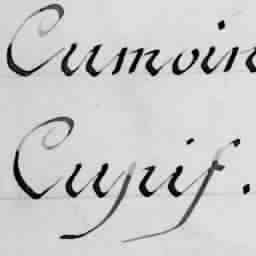 Cumoin
Cupif.